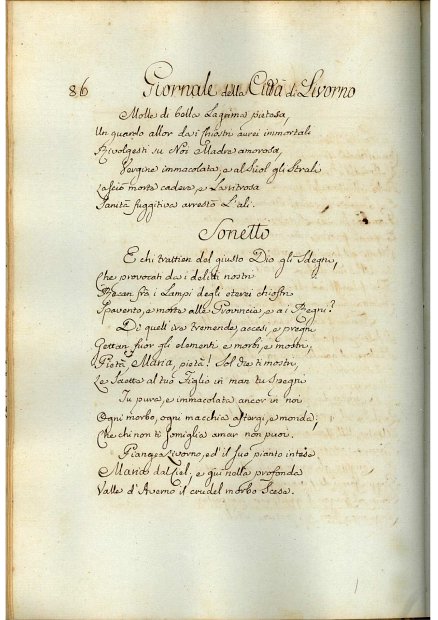 86 Giornale della Città di Livorno
Molle di bella Lagrima pietosa,
Un guardo allor da i chiostri aurei immortali
Rivolgesti su Noi Madre amorosa,
Vergine immacolata, e al Suol gli Strali
Lasciò morte cadere, e La ritrosa
Sanità fuggitiva arrestò L'ali.
Sonetto
E chi trattien del giusto Dio gli Sdegni,
Che provocati da i delitti nostri
Recan frà i Lampi degli eterei chiostri
Spavento, e morte alle Provincie, e a i Regni?
Di quell'ire tremende accesi, e pregni
Gettan fuor gli elementi e morbi, e mostri,
Pietà Maria, pietà! Sol che ti mostri,
Le Saette al tuo Figlio in man tu Spegni
Tu pura, e immacolata ancor in noi
Ogni morbo, ogni macchia astergi, e monda,
Che chi non ti Somiglia amar non puoi.
Piangea Livorno, ed il Suo pianto intese
Maria dal Ciel; e giù nella profonda
Valle d'Averno il crudel morbo Scese.